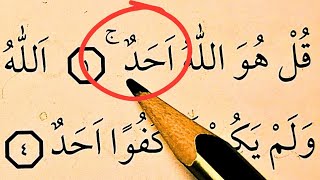 قُلْ هُوَ اللّٰهُ اَحَدٌ ۚ ۝١ اَللّٰهُ
وَلَمْ يَكُنْ كُفُوًا اَحَدٌ ۝٤